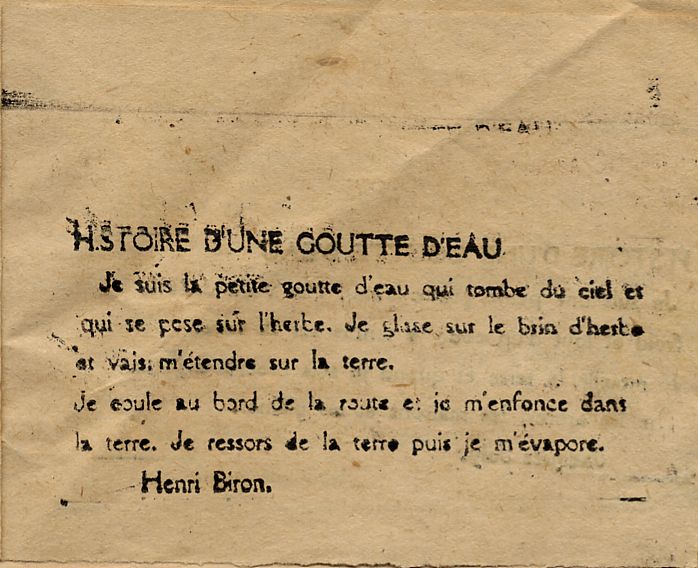 HISTOIRE D'UNE GOUTTE D'EAU
Je suis la petite goutte d'eau qui tombe du ciel et
qui se pose sur l'herbe. Je glisse sur le brin d'herbe
et vais m'étendre sur la terre.
Je coule au bord de la route et je m'enfonce dans
la terre. Je ressors de la terre puis je m'évapore.
Henri Biron.